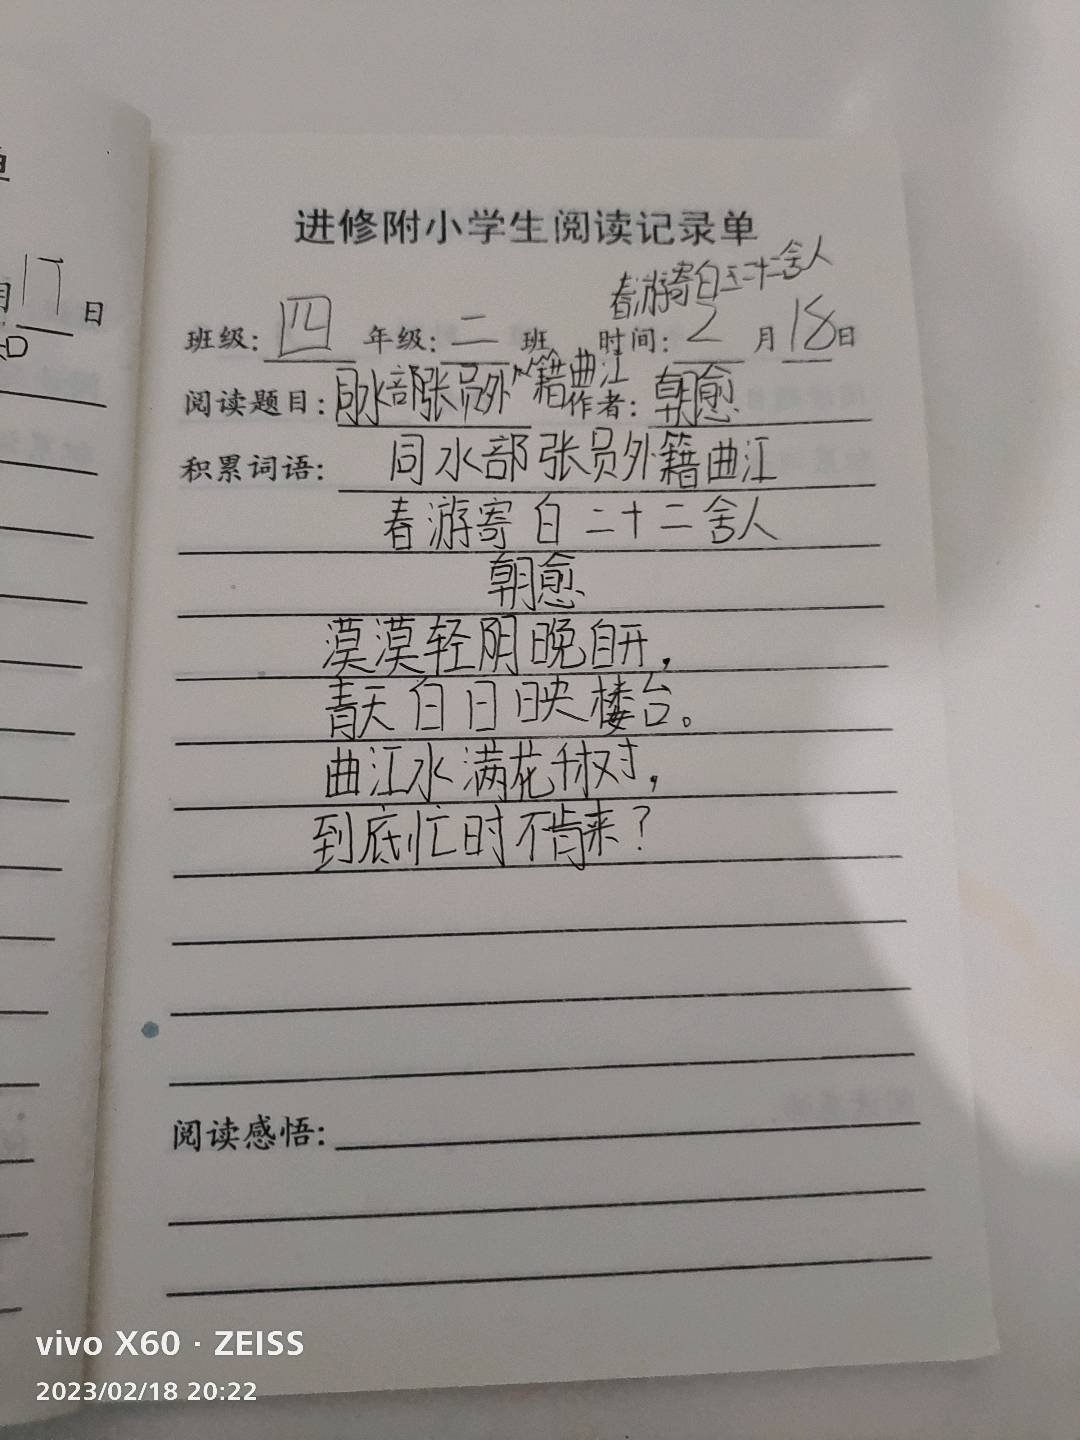 单
月17日
进修附小学生阅读记录单
春游寄白二十二舍人
班级:四 年级:二 班 时间:2月18日
阅读题目:同水部张员外籍曲江 作者:朝愈
积累词语: 同水部张员外籍曲江
春游寄白二十二舍人
朝愈
漠漠轻阴晚自开,
青天白日映楼台。
曲江水满花千树,
到底忙时不肯来?
阅读感悟:
vivo X60 · ZEISS
2023/02/18 20:22